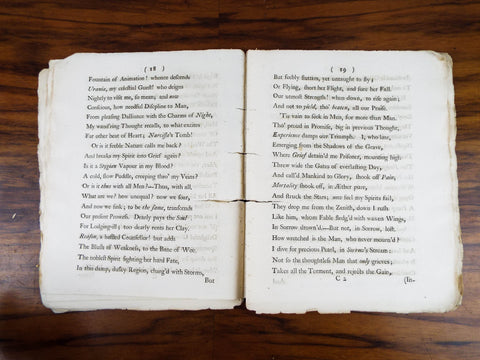 ( 18 )
Fountain of Animation! whence descends
Urania, my celestial Guest! who deigns
Nightly to visit me, so mean; and now
Conscious, how needful Discipline to Man,
From pleasing Dalliance with the Charms of Night,
My wand'ring Thought recalls, to what excites
Far other beat of Heart; Narcissa's Tomb!
Or is it feeble Nature calls me back?
And breaks my Spirit into Grief again?
Is it a Stygian Vapour in my Blood?
A cold, slow Puddle, creeping thro' my Veins?
Or is it thus with all Men?—Thus, with all.
What are we? how unequal? now we soar,
And now we sink; to be the same, transcends
Our present Prowess. Dearly pays the Soul
For Lodging-ill; too dearly rents her Clay.
Reason, a baffled Counsellor! but adds
The Blush of Weakness, to the Bane of Woe.
The noblest Spirit fighting her hard Fate,
In this damp, dusky Region, charg'd with Storms,
But
( 19 )
But feebly flutters, yet untaught to fly;
Or Flying, short her Flight, and sure her Fall.
Our utmost Strength! when down, to rise again;
And not to yield, tho' beaten, all our Praise.
'Tis vain to seek in Men, for more than Man.
Tho' proud in Promise, big in previous Thought,
Experience damps our Triumph. I, who late,
Emerging from the Shadows of the Grave,
Where Grief detain'd me Prisoner, mounting high,
Threw wide the Gates of everlasting Day,
And call'd Mankind to Glory, shook off Pain,
Mortality shook off, in Æther pure,
And struck the Stars; now feel my Spirits fail,
They drop me from the Zenith, down I rush
Like him, whom Fable fledg'd with waxen Wings,
In Sorrow drown'd—But not, in Sorrow, lost.
How wretched is the Man, who never mourn'd?
I dive for precious Pearl, in Sorrow's Stream:
Not so the thoughtless Man that only grieves;
Takes all the Torment, and rejects the Gain,
C 2
(In-